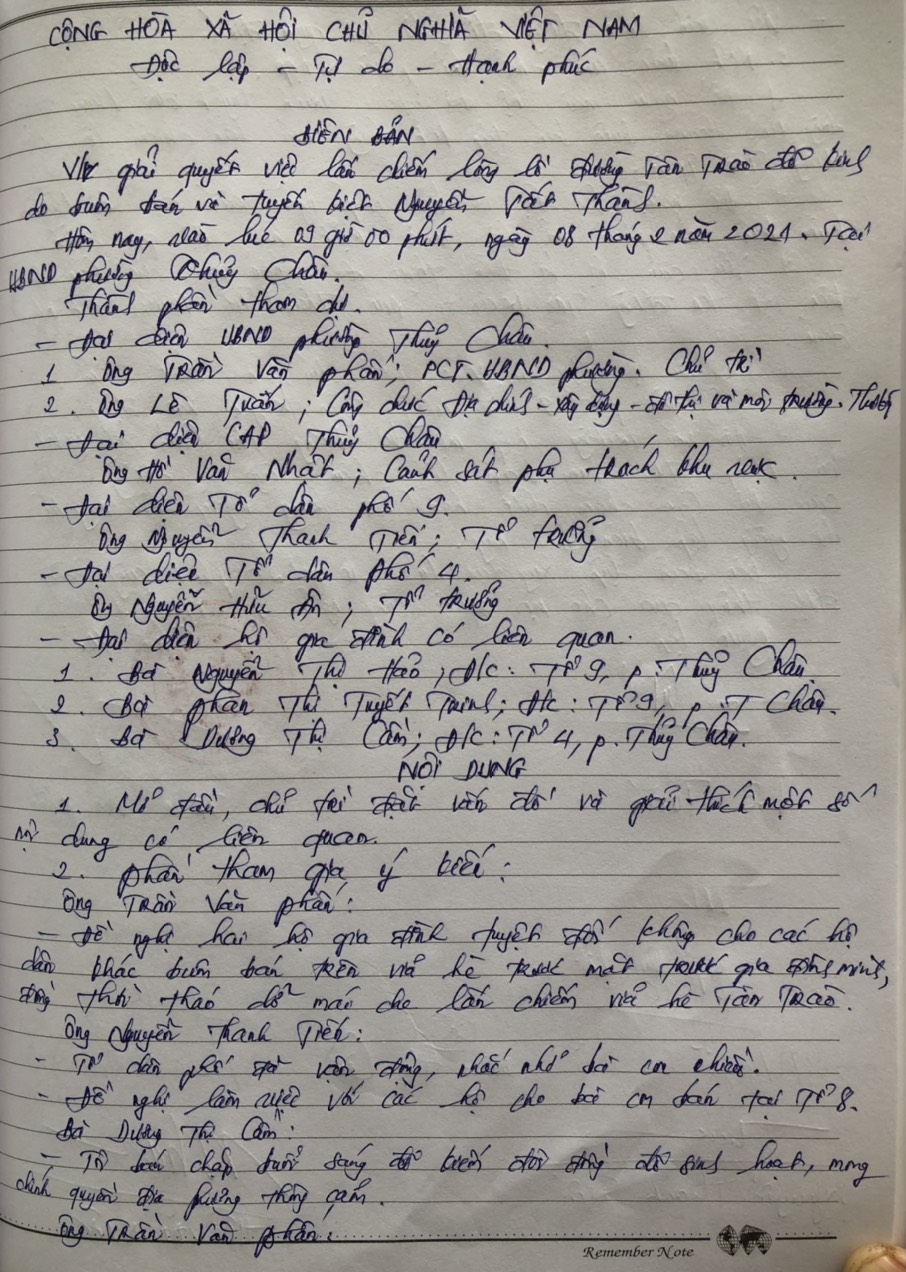 CỘNG HÒA XÃ HỘI CHỦ NGHĨA VIỆT NAM
Độc lập - Tự do - Hạnh phúc
BIÊN BẢN
V/v giải quyết việc lấn chiếm lòng lề đường Tân Trào để kinh
do buôn bán và tuyến kiệt Nguyễn Tất Thành.
Hôm nay, vào lúc 09 giờ 00 phút, ngày 08 tháng 2 năm 2021. Tại
UBND phường Thủy Châu.
Thành phần tham dự.
- Đại diện UBND phường Thủy Châu.
1 Ông Trần Văn Phấn; PCT. UBND phường. Chủ trì
2. Ông Lê Tuấn; Công chức Địa chính - xây dựng - đô thị và môi trường.
- Đại diện CAP Thủy Châu
Ông Hồ Văn Nhất; Cảnh sát phụ trách khu vực.
- Đại diện Tổ dân phố 9.
Ông Nguyễn Thanh Tiến; Tổ trưởng
- Đại diện Tổ dân phố 4.
Ông Nguyễn Hữu Ân; Tổ trưởng
- Đại diện hộ gia đình có liên quan.
1. Bà Nguyễn Thị Hảo; Đ/c: Tổ 9, p. Thủy Châu.
2. Bà Phan Thị Tuyết Trinh; Đ/c: Tổ 9, p. T Châu.
3. Bà Dương Thị Cẩm; Đ/c: Tổ 4, p. Thủy Châu.
NỘI DUNG
1. Mở đầu, chủ trì đặt vấn đề và giải thích một số
nội dung có liên quan.
2. Phần tham gia ý kiến:
Ông Trần Văn Phấn:
- Đề nghị hai hộ gia đình tuyệt đối không cho các hộ
dân khác buôn bán trên vỉa hè trước mặt trước gia đình mình,
đồng thời tháo dỡ mái che lấn chiếm vỉa hè Tân Trào.
Ông Nguyễn Thanh Tiến:
- Tổ dân phố đã vận động, nhắc nhở bà con nhiều.
- Đề nghị làm việc với các hộ cho bà con bán tại Tổ 8.
Bà Dương Thị Cẩm:
- Tôi bán chạp buổi sáng để kiếm đôi đồng để sinh hoạt, mong
chính quyền địa phương thông cảm.
Ông Trần Văn Phấn:
Remember Note